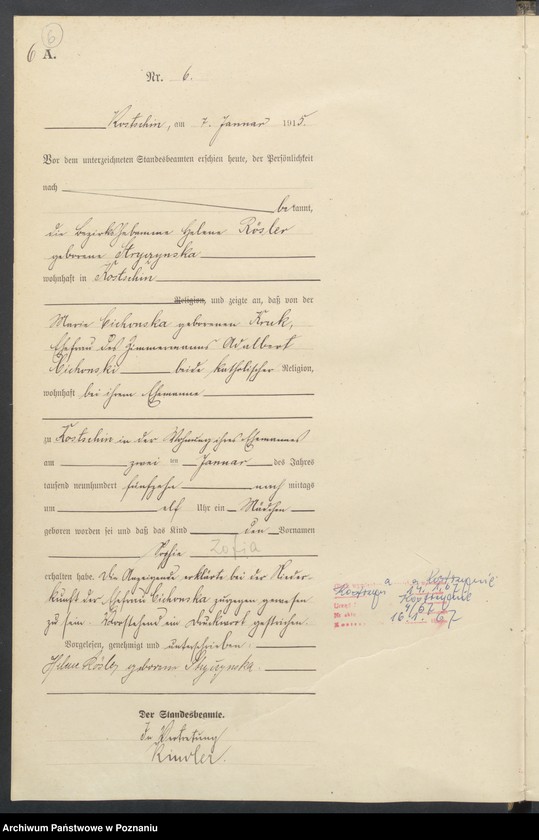 6 A.
6
Nr. 6.
Kostschin, am 7. Januar 1915.
Vor dem unterzeichneten Standesbeamten erschien heute, der Persönlichkeit
nach
bekannt,
die Bezirkshebamme Helene Rösler
geborene
wohnhaft in Kostschin
Religion, und zeigte an, daß von der
Marie Cichonska geborenen Kruk,
Ehefrau des Zimmermanns Adalbert
Cichonski beide katholischer Religion,
wohnhaft bei ihrem Ehemanne
zu Kostschin in der Wohnung ihres Ehemannes
am zwei ten Januar des Jahres
tausend neunhundert fünfzehn nach mittags
um elf Uhr ein Mädchen
geboren worden sei und daß das Kind den Vornamen
Sophie Zofia
erhalten habe. Die Anzeigende erklärte bei der Nieder-
kunft der Ehefrau Cichonska zugegen gewesen
zu sein. Vorstehend ein Druckwort gestrichen.
Vorgelesen, genehmigt und unterschrieben.
Helene Rösler geborene
Der Standesbeamte.
In Vertretung
Kostrzyn
16.1. 67
Archiwum Państwowe w Poznaniu